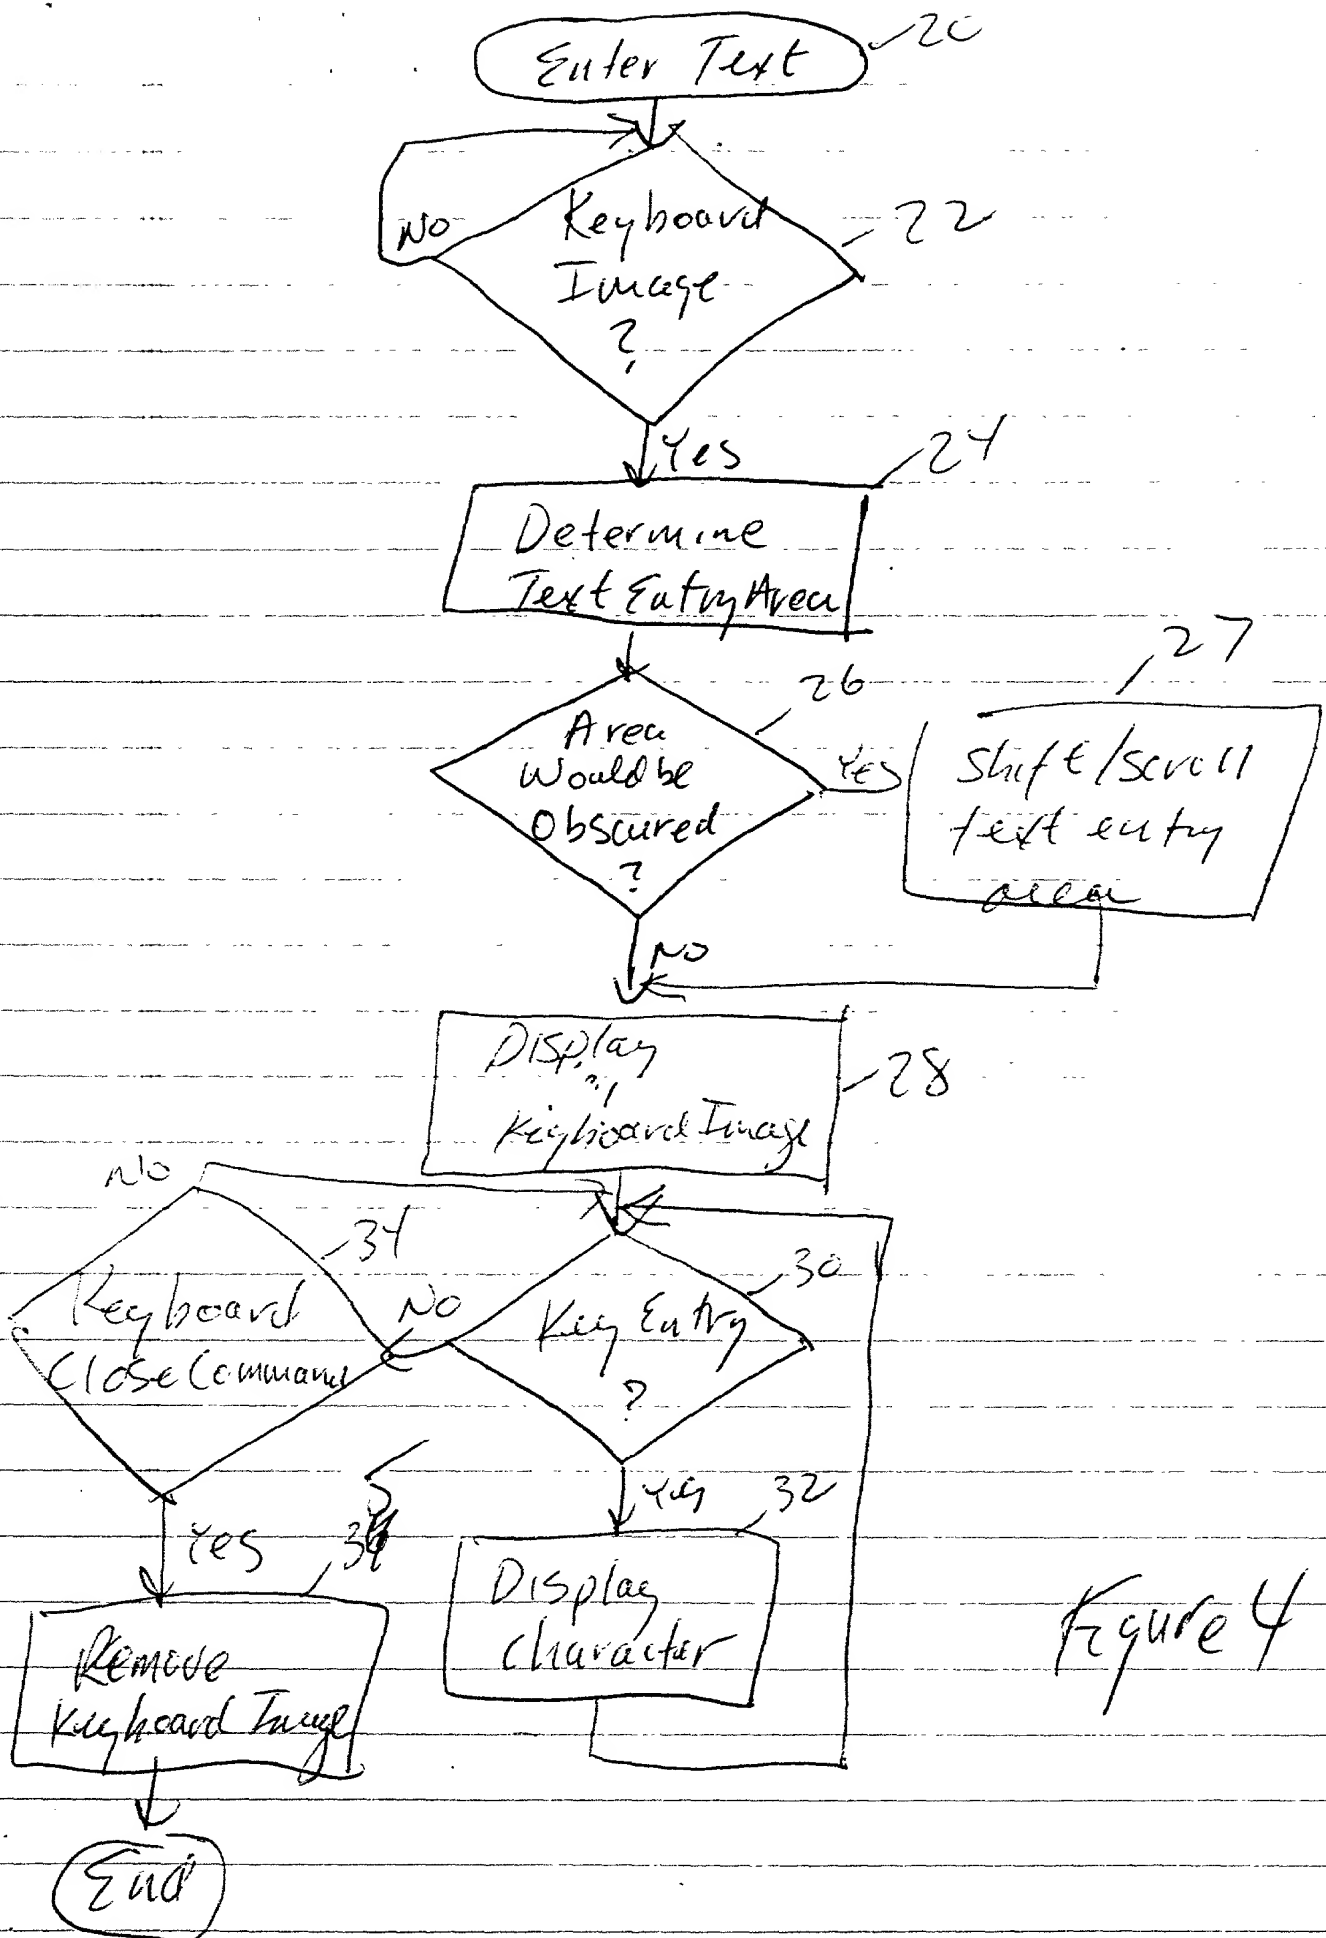 Enter Text
20
No
Keyboard
Image
?
22
Yes
24
Determine
Text Entry Area
26
27
Area
Would be
Obscured
?
Yes
Shift/scroll
text entry
area
No
Display
Keyboard Image
28
No
34
30
Keyboard
Close Command
No
Key Entry
?
Yes
Yes
32
Display
character
Remove
Keyboard Image
Figure 4
End